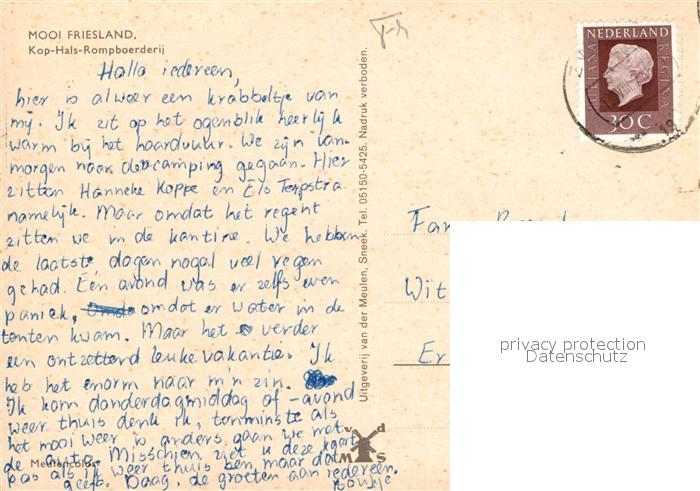 MOOI FRIESLAND,
Kop-Hals-Rompboerderij
Hallo iedereen,
hier is alweer een krabbeltje van
mij. Ik zit op het ogenblik heerlijk
warm bij het haardvuur. We zijn van-
morgen naar de camping gegaan. Hier
zitten Hanneke Koppe en Els Terpstra
namelijk. Maar omdat het regent
zitten we in de kantine. We hebben
de laatste dagen nogal veel regen
gehad. Één avond was er zelfs even
paniek, omdat er water in de
tenten kwam. Maar het verder
een ontzettend leuke vakantie. Ik
heb het enorm naar m'n zin.
Ik kom donderdagmiddag of -avond
weer thuis denk ik, tenminste als
het mooi weer is anders gaan we met
de auto. Misschien ziet u deze kaart
pas als ik weer thuis ben, maar dat
geeft. Daag, de groeten aan iedereen.
Meulencolor
Uitgeverij van der Meulen, Sneek. Tel. 05150-5425. Nadruk verboden.
v d
M S
NEDERLAND
JULIANA REGINA
30 C
Fam.
Wit
Er
privacy protection
Datenschutz